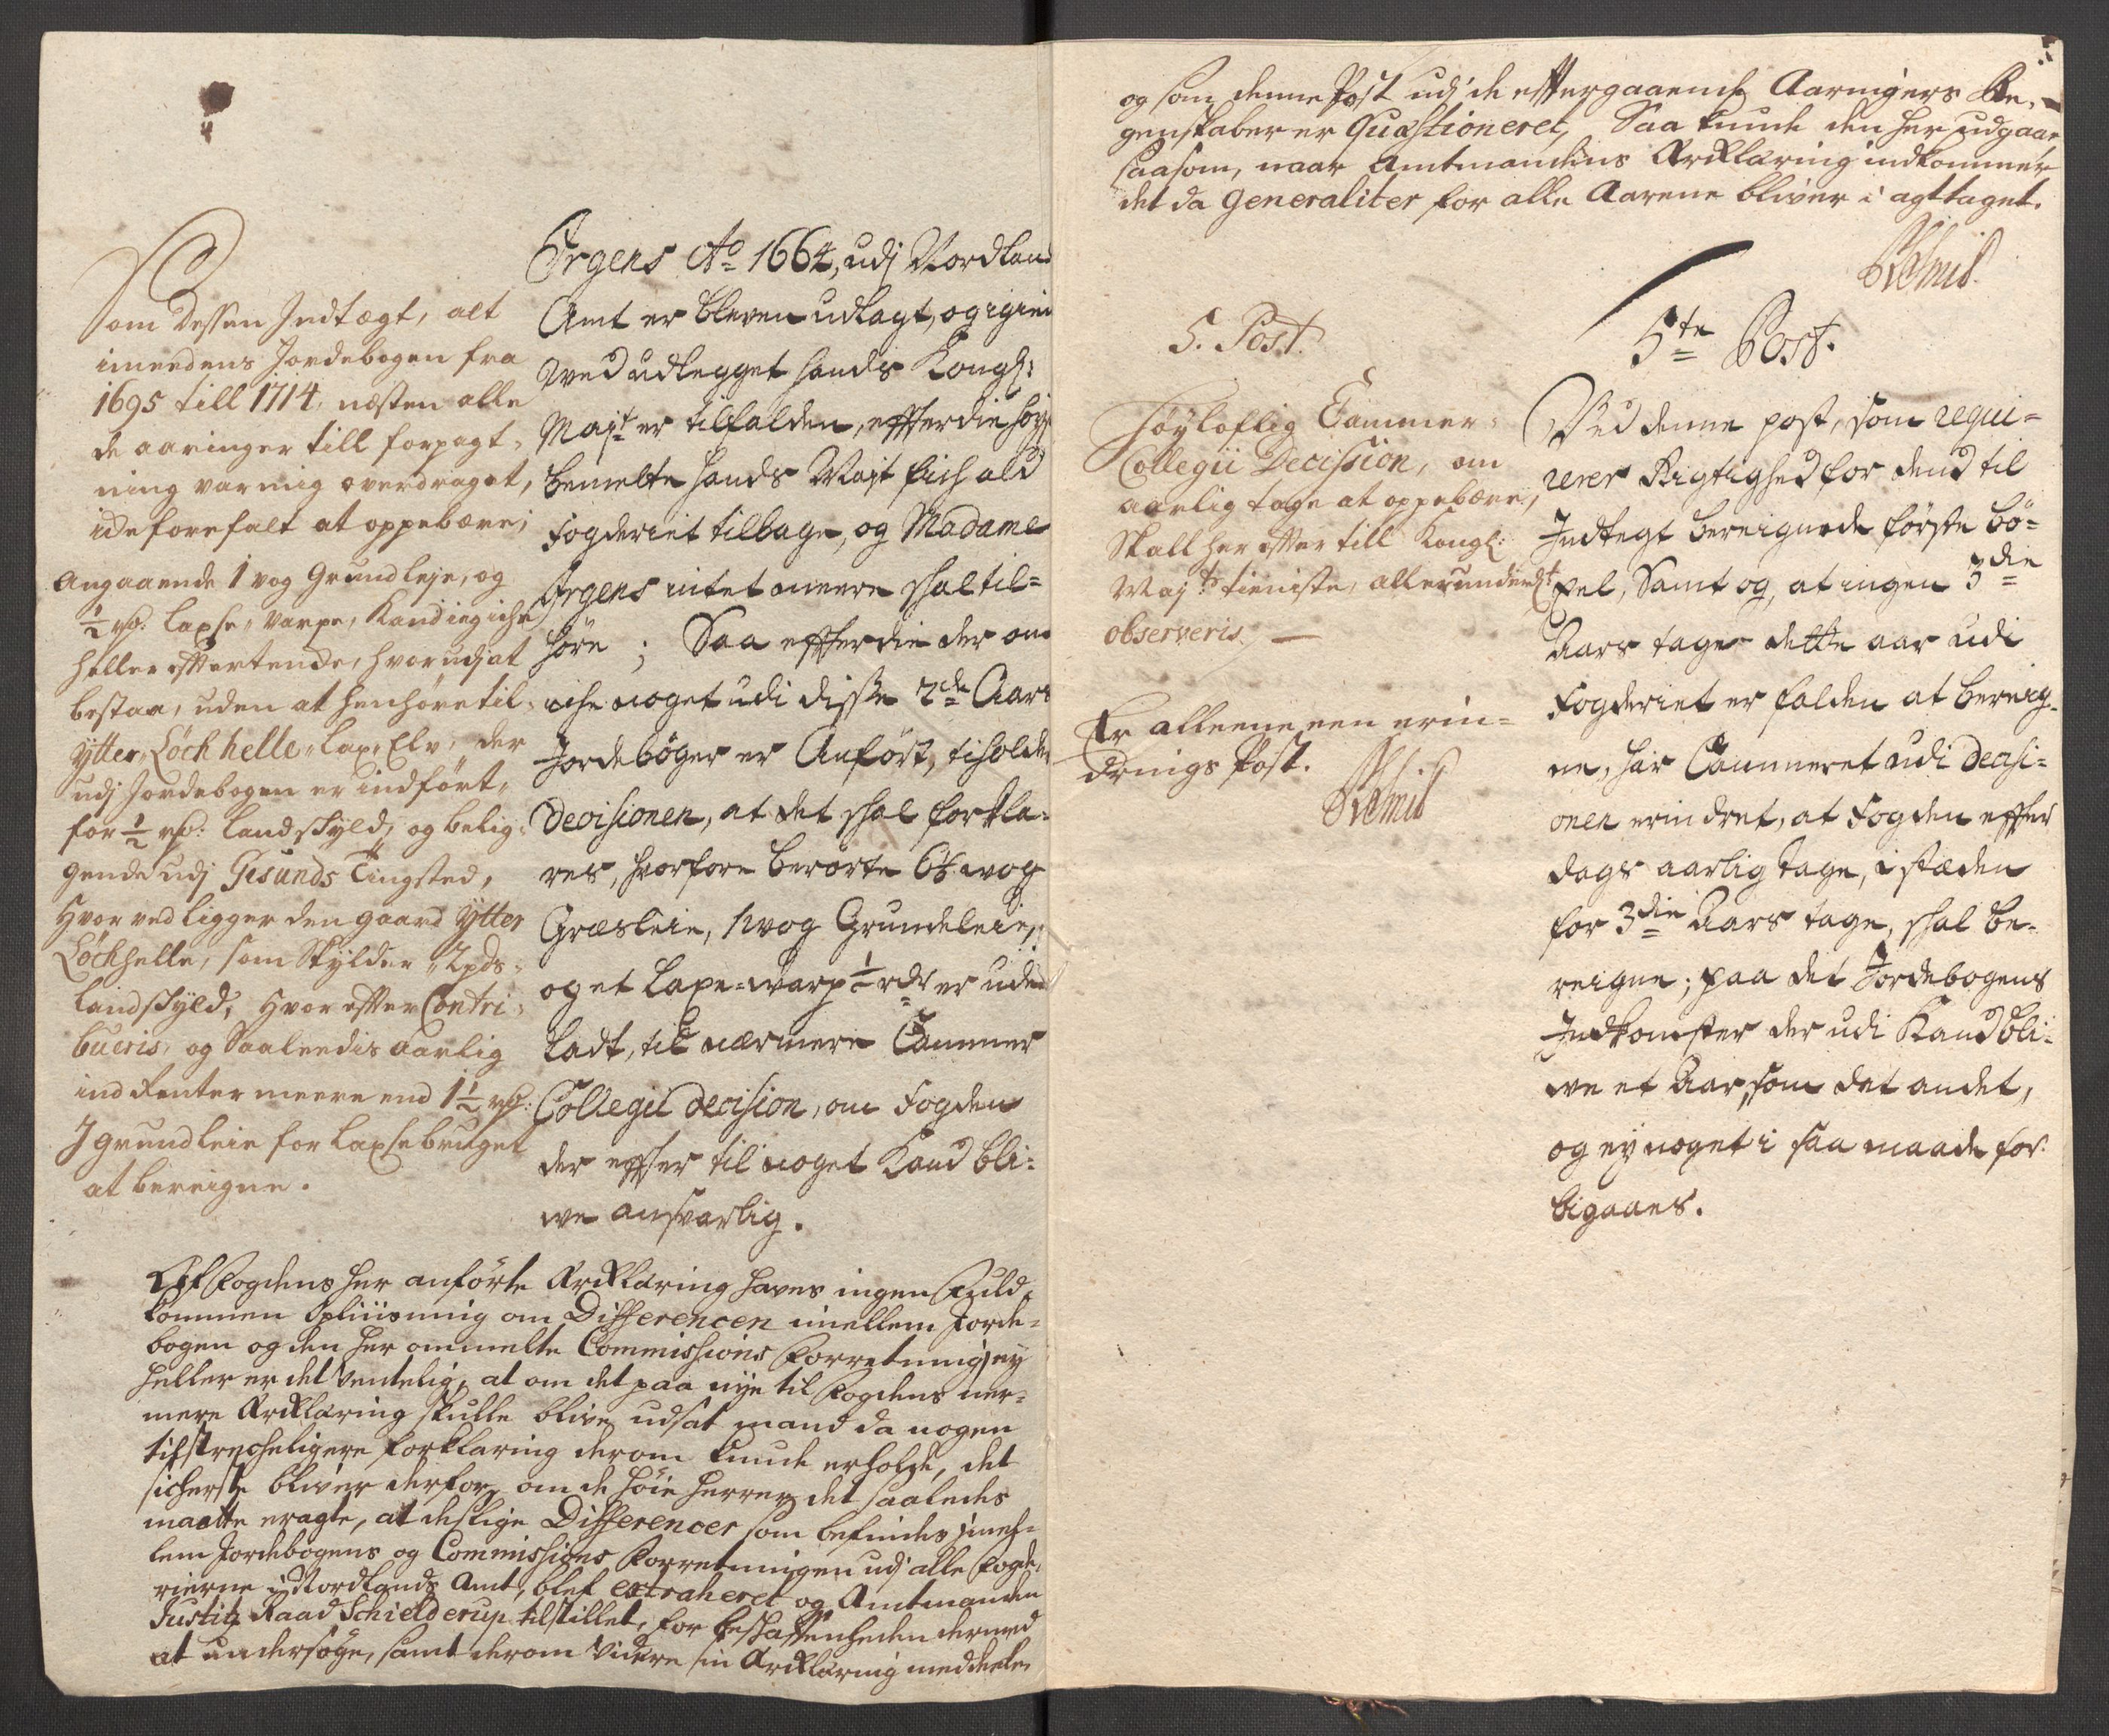 Som dessen Indtægt, alt
imeedens Jordebogen fra
1695 till 1714, næsten alle
de aaringer till forpagt-
ning var mig overdraget,
ide forefalt at oppebære;
Angaaende 1 vog Grundleje, og
½ rd: laxse-varpe, Kand ieg iche
heller effertænde, hvorudj at
bestaa, uden at henhøre til
Ytter Löchhelle Lax Elv, der
udj Jordebogen er indført,
for ½ rd: landskyld, og belig-
gende udj Gisunds Tingsted,
Hvor ved ligger den gaard Ytter
Löchhelle, som Skylder 2 pds
landskyld, Hvor effter Contri-
bueris, og Saaleedis aarlig
ind Renter meere end 1½ rd:
J grundleie for laxsebruget
at bereigne.
Irgens Ao 1664, udj Nordland
Amt er bleven udlagt, og igien
ved udlegget hands Kongl:
Majt er tilfalden, effterdie høy
bemelte hands Majt fich ald
Fogderiet tilbage, og Madame
Irgens intet meere skal til-
høre; Saa effterdie der om
iche noget udi disse 2de Aars
Jordebøger er Anført, tilholder
Decisionen, at det skal forkla-
res, hvorfore berørte 68 vog
Græsleie, 1 vog Grundeleie,
og et Laxe-warp ½ rdr er ude
ladt, til nærmere Cammer
Collegii decision, om Fogden
der effter til noget Kand bli-
we ansvarlig.
Af Fogdens her anførte Erklæring haves ingen Fuld-
kommen Opliusning om Differencen imellem Jorde-
bogen og den her ommelte Commissions Forretning, ey
heller er det Ventelig, at om det paa nye til Fogdens ner-
mere Erklæring skulle blive udsat mand da nogen
tilstrecheligere forklaring derom kunde erholde, det
sicherste bliver derfor, om de høie Herrer det saaledes
maatte eragte, at deslige Differencer som befindes imel-
lem Jordebogens og Commissions Forretningen udj alle Fogde-
rierne i Nordlands Amt, blef extraheret og Amtmanden
Justitz Raad Schielderup tilstillet, for beskaffenheden dermed
at undersøge, samt derom Videre sin Erklæring meddeele,
og som denne Post udj de efftergaaende Aaringers Re-
genskaber er Quæstioneret, Saa kunde den her udgaar
saasom, naar Amtmandens Erklæring indkommer
det da generaliter for alle Aarene bliver i agttaget.
5. Post.
Høylofflig Cammer-
Collegii Decission, om
aarlig tage at oppebære,
Skall her effter till Kongl:
Majts tieniste, allerunderdt
observeris.
Er alleene een erin-
drings Post.
5te Post.
Ved denne post, som requi-
rerer Rigtighed for dend til
Indtegt bereignede første bø-
xel, Samt og, at ingen 3die
Aars tage dette aar udi
Fogderiet er falden at bereig-
ne, har Cammeret udi decisi-
onen erindret, at Fogden effter
dags aarlig tage, i stæden
for 3die Aars tage, skal be-
reigne; paa det Jordebogens
Indkomster der udi Kand bli-
we et Aar, som det andet,
og ey noget i saa maade for-
bigaaes.